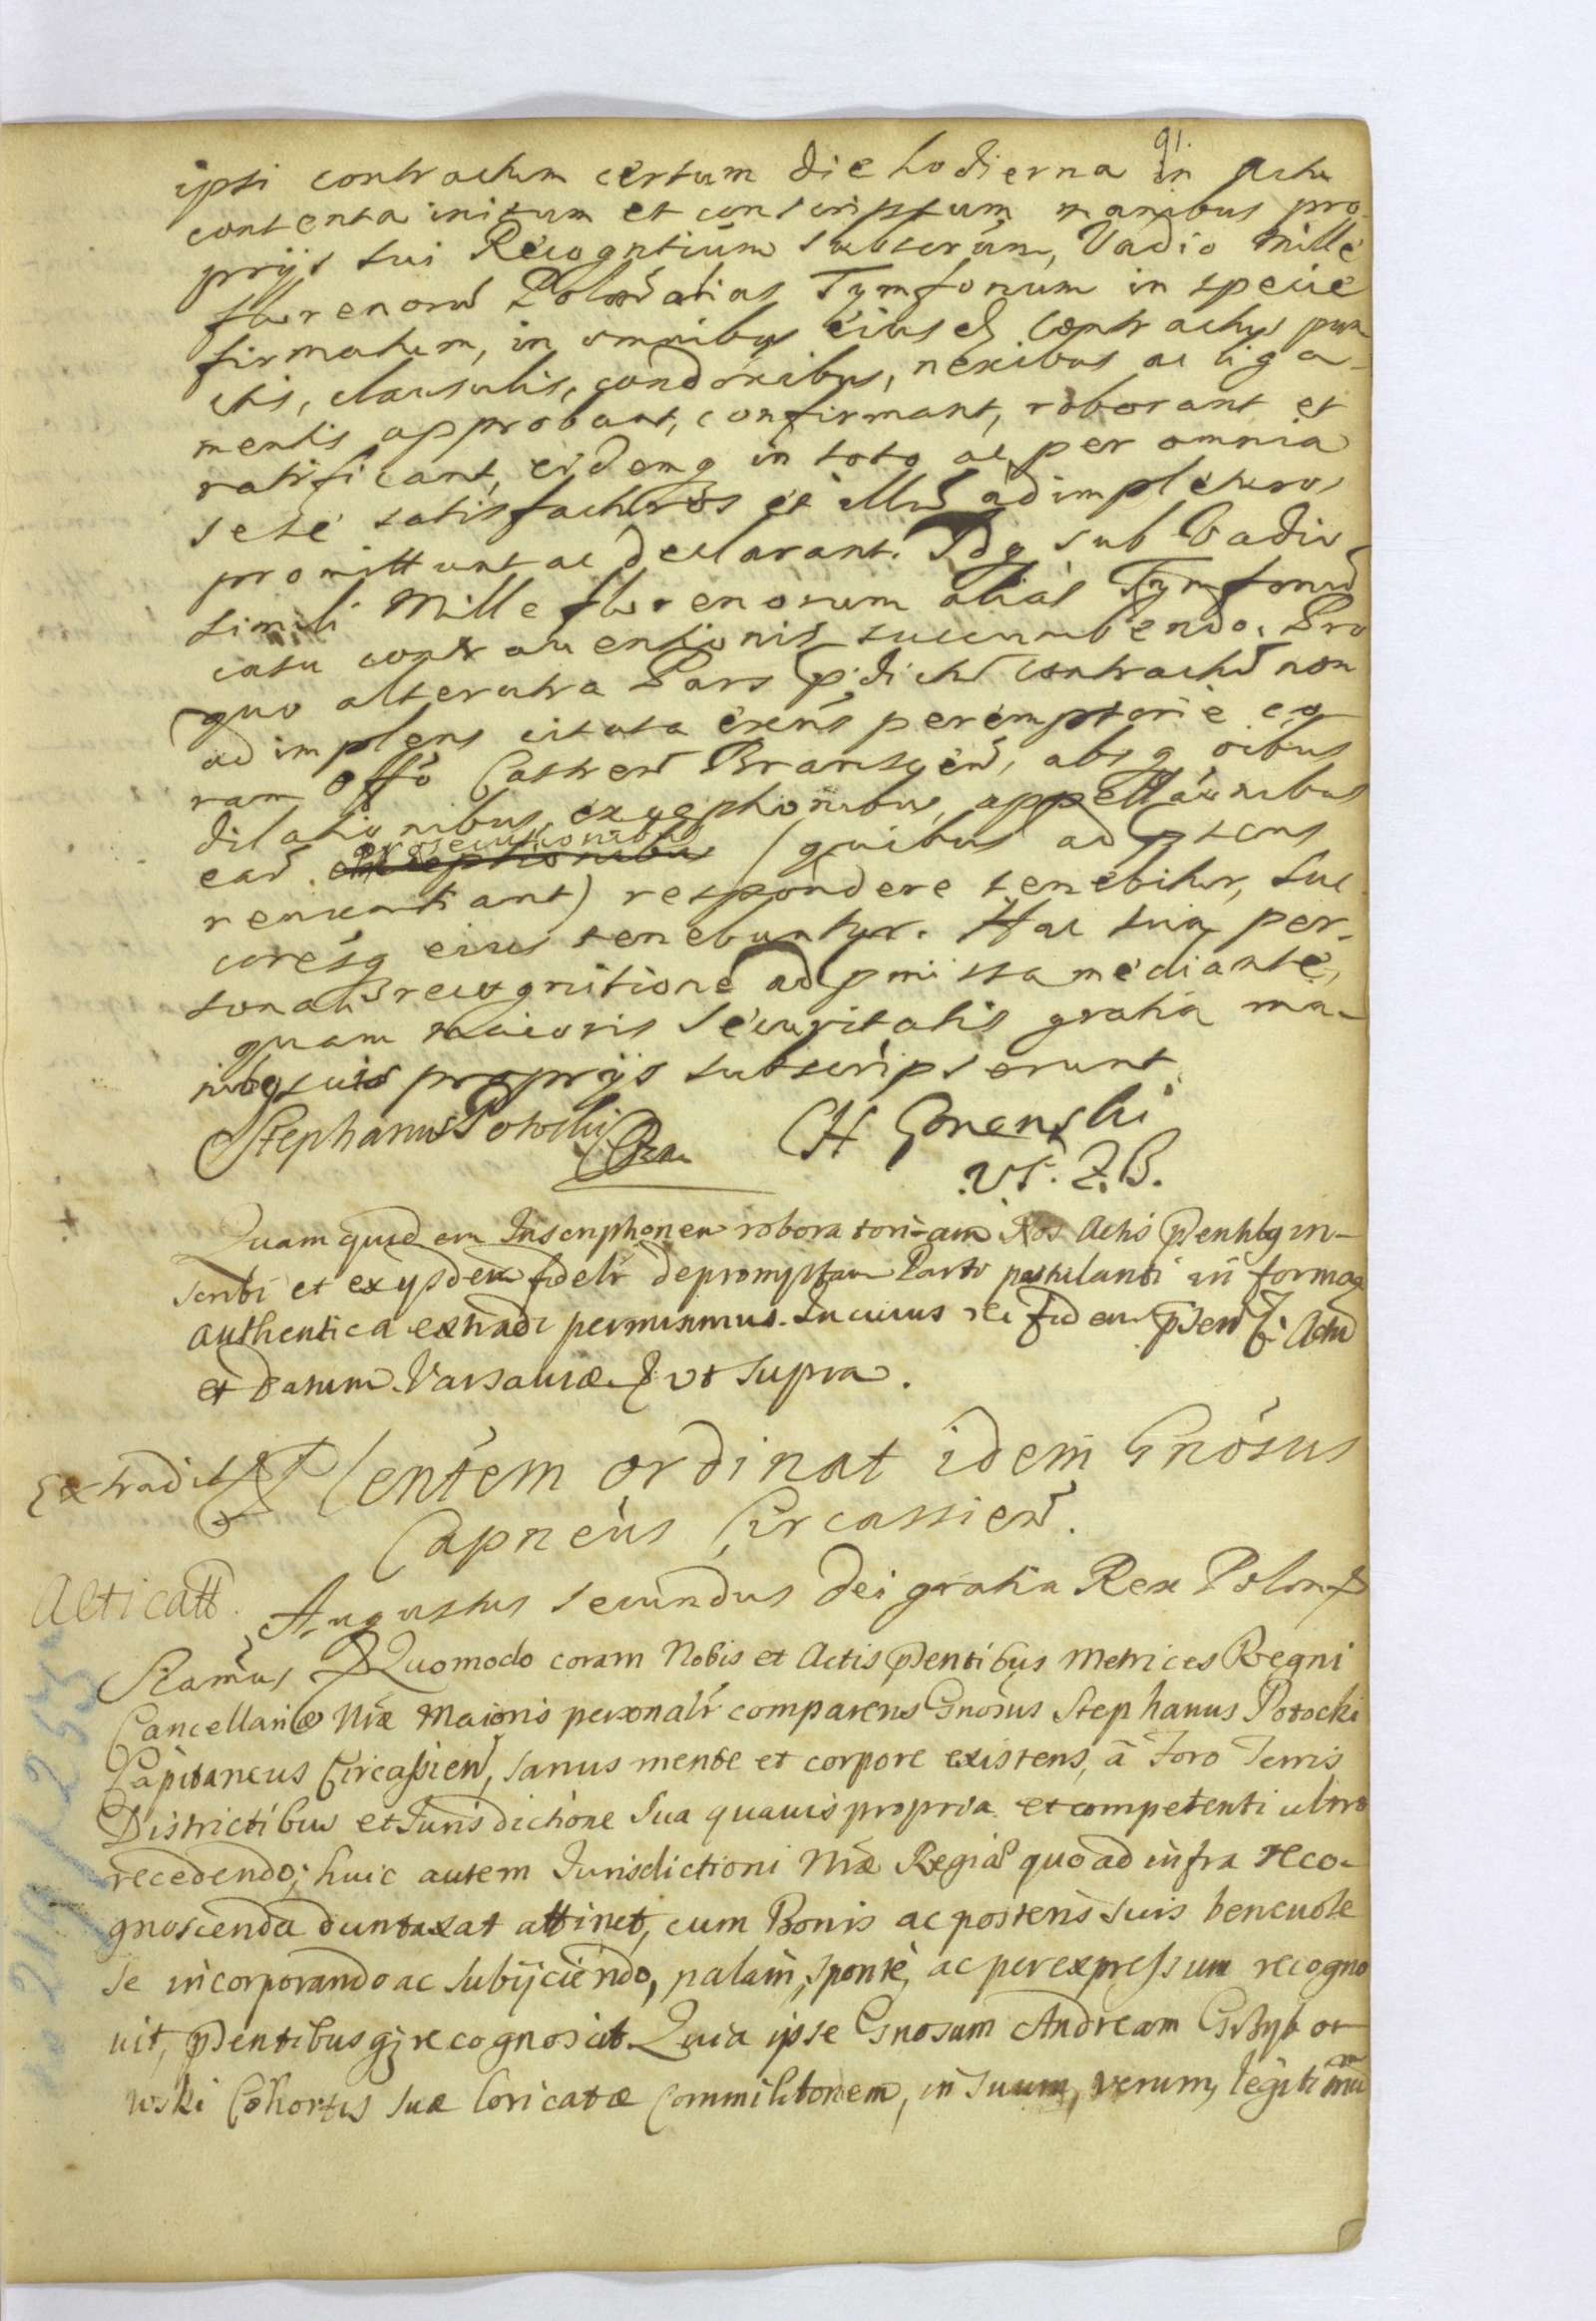 91.
ipsi contractum certum die hodierna in actu
contenta initum et conscriptum manibus pro
prijs sui Recogntium subscrum, Vadio mille
florenorũ Polonˇ alias Tymfonum in specie
firmatum, in omnibus eiusd Contractus pun
ctis, clausulis, condonibus, nexibus ac liga-
mentis approbant, confirmant, roborant et
ratificant, eidemq in toto ac per omnia
sese satisfacturos et illud adimpleturos
promittunt ac declarant. Idq sub Vadio
simili Mille florenorum alias Tymfonũ
casu contrauentionis succumbendo. Pro
quo alterutra Pars pdicti contractũ non
adimplens citata exns peremptorie co
ram Offo Castren Branscen, absq oibus
dilationibus, exceptionibus, appellaonibus
ear. prosecutionibus (quibus ad
renuntiant) respondere tenebitur, suc
coresq eius tenebuntur. Hac sua per-
sonali recognitione ad pmissa mediante,
quam maioris securitatis gratia ma-
nibq suis proprijs subscripserunt
Stephanus Potocki CH
V.S. Z.B.
Quam quidem Inscriptionem roboratoriam Nos Actis pentibq in-
scribi et ex ysdem fideli depromptam Parti postulanti in forma
authentica extradi permisimus. In cuius rei fidem psen Actũ
et Datum Varsauiæ ut supra.
Extradit
entem ordinat idem Gnosus
Capneus Circassien.
Acticatt. Augustus Secundus Dei gratia Rex Polon
Siamus Quomodo coram Nobis et Actis pentibus Metrices Regni
Cancellariæ Nræ Maioris personalr comparens Gnosus Stephanus Potocki
Capitaneus Circassien, sanus mente et corpore existens, a Foro Terris
Districtibus et Jurisdictione sua quauis propria et competenti ultro
recedendo; huic autem Jurisdictioni Nræ Regiæ quo ad infra reco-
gnoscenda duntaxat attinet, cum Bonis ac posteris suis beneuole
se incorporando ac subijciendo, palam, sponte, ac per expressum recogno
uit, pentibusq; recognoscit. Quia ipse Gnosum Andream Grzybo
wski Cohortis suæ loricatæ Commilitonem, in suum, verum, legitimũ